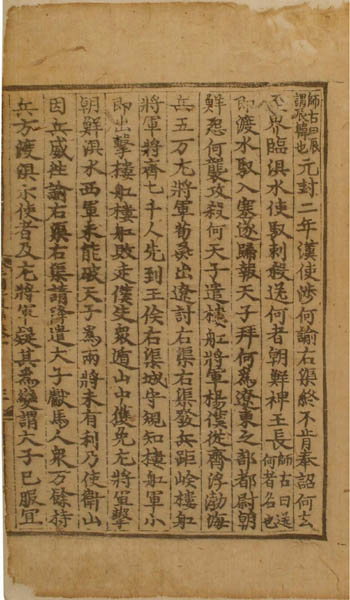 師古曰辰謂辰韓也元封二年漢使涉何諭右渠終不肯奉詔何去
至界臨浿水使馭刺殺送何者朝鮮裨王長師古曰送何者名也
即渡水馭入塞遂歸報天子拜何爲遼東之部都尉朝
鮮怨何襲攻殺何天子遣樓舡將軍楊僕從齊浮渤海
兵五万左將軍荀彘出遼討右渠右渠發兵距嶮樓舡
將軍將齊七千人先到王儉右渠城守規知樓舡軍小
即出擊樓舡樓舡敗走僕失衆遁山中獲免左將軍擊
朝鮮浿水西軍未能破天子爲兩將未有利乃使衛山
因兵威徃諭右渠右渠請降遣大子獻馬人衆万餘持
兵方渡浿水使者及左將軍疑其爲變謂大子已服宜